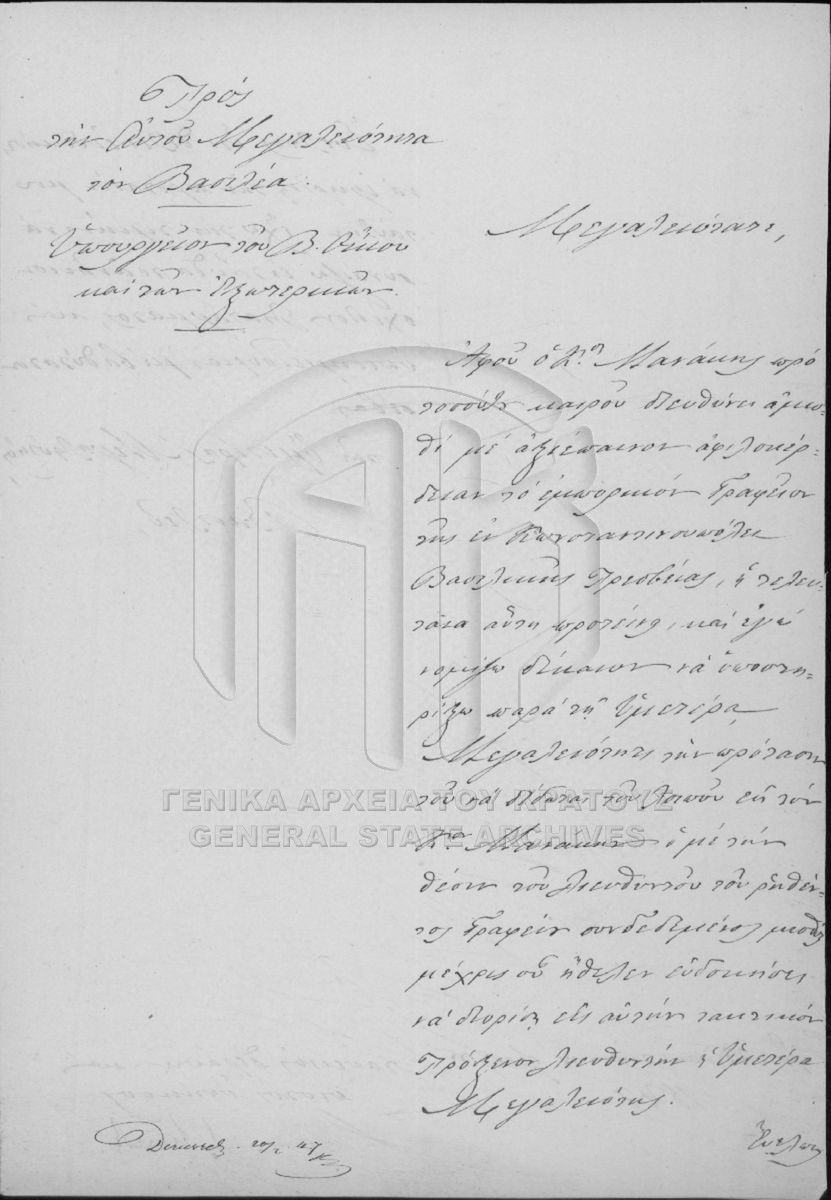 Πρός
τὴν Αὐτοῦ Μεγαλειότητα
τὸν Βασιλέα.
Ὑπουργεῖον τοῦ Β. Οἴκου
καὶ τῶν Ἐξωτερικῶν.
Μεγαλειότατε,
Ἀφοῦ ὁ Κος Μανάκης πρὸ
τοσούτου καιροῦ διευθύνει
μὲ ἀξιέπαινον ἀφιλοκέρ-
δειαν τὸ ἐμπορικὸν Γραφεῖον
τῆς ἐν Κωνσταντινουπόλει
Βασιλικῆς Πρεσβείας, ἡ τελευ-
ταία αὕτη προτείνει, καὶ ἐγὼ
νομίζω δίκαιον νὰ ὑποστη-
ρίξω παρὰ τῇ Ὑμετέρᾳ
Μεγαλειότητι τὴν πρότασιν
τοῦ νὰ δίδεται τοῦ λοιποῦ εἰς τὸν
Κον Μανάκην ὁ μὲ τὴν
θέσιν τοῦ Διευθυντοῦ τοῦ ῥηθέν-
τος Γραφείου συνδεδεμένος μισθὸς
μέχρις οὗ ἤθελεν εὐδοκήσει
νὰ διορίσῃ εἰς αὐτὴν τακτικὸν
Πρόξενον Διευθυντὴν ἡ Ὑμετέρα
Μεγαλειότης.
Εὐελπις
ΓΕΝΙΚΑ ΑΡΧΕΙΑ ΤΟΥ ΚΡΑΤΟΥΣ
GENERAL STATE ARCHIVES